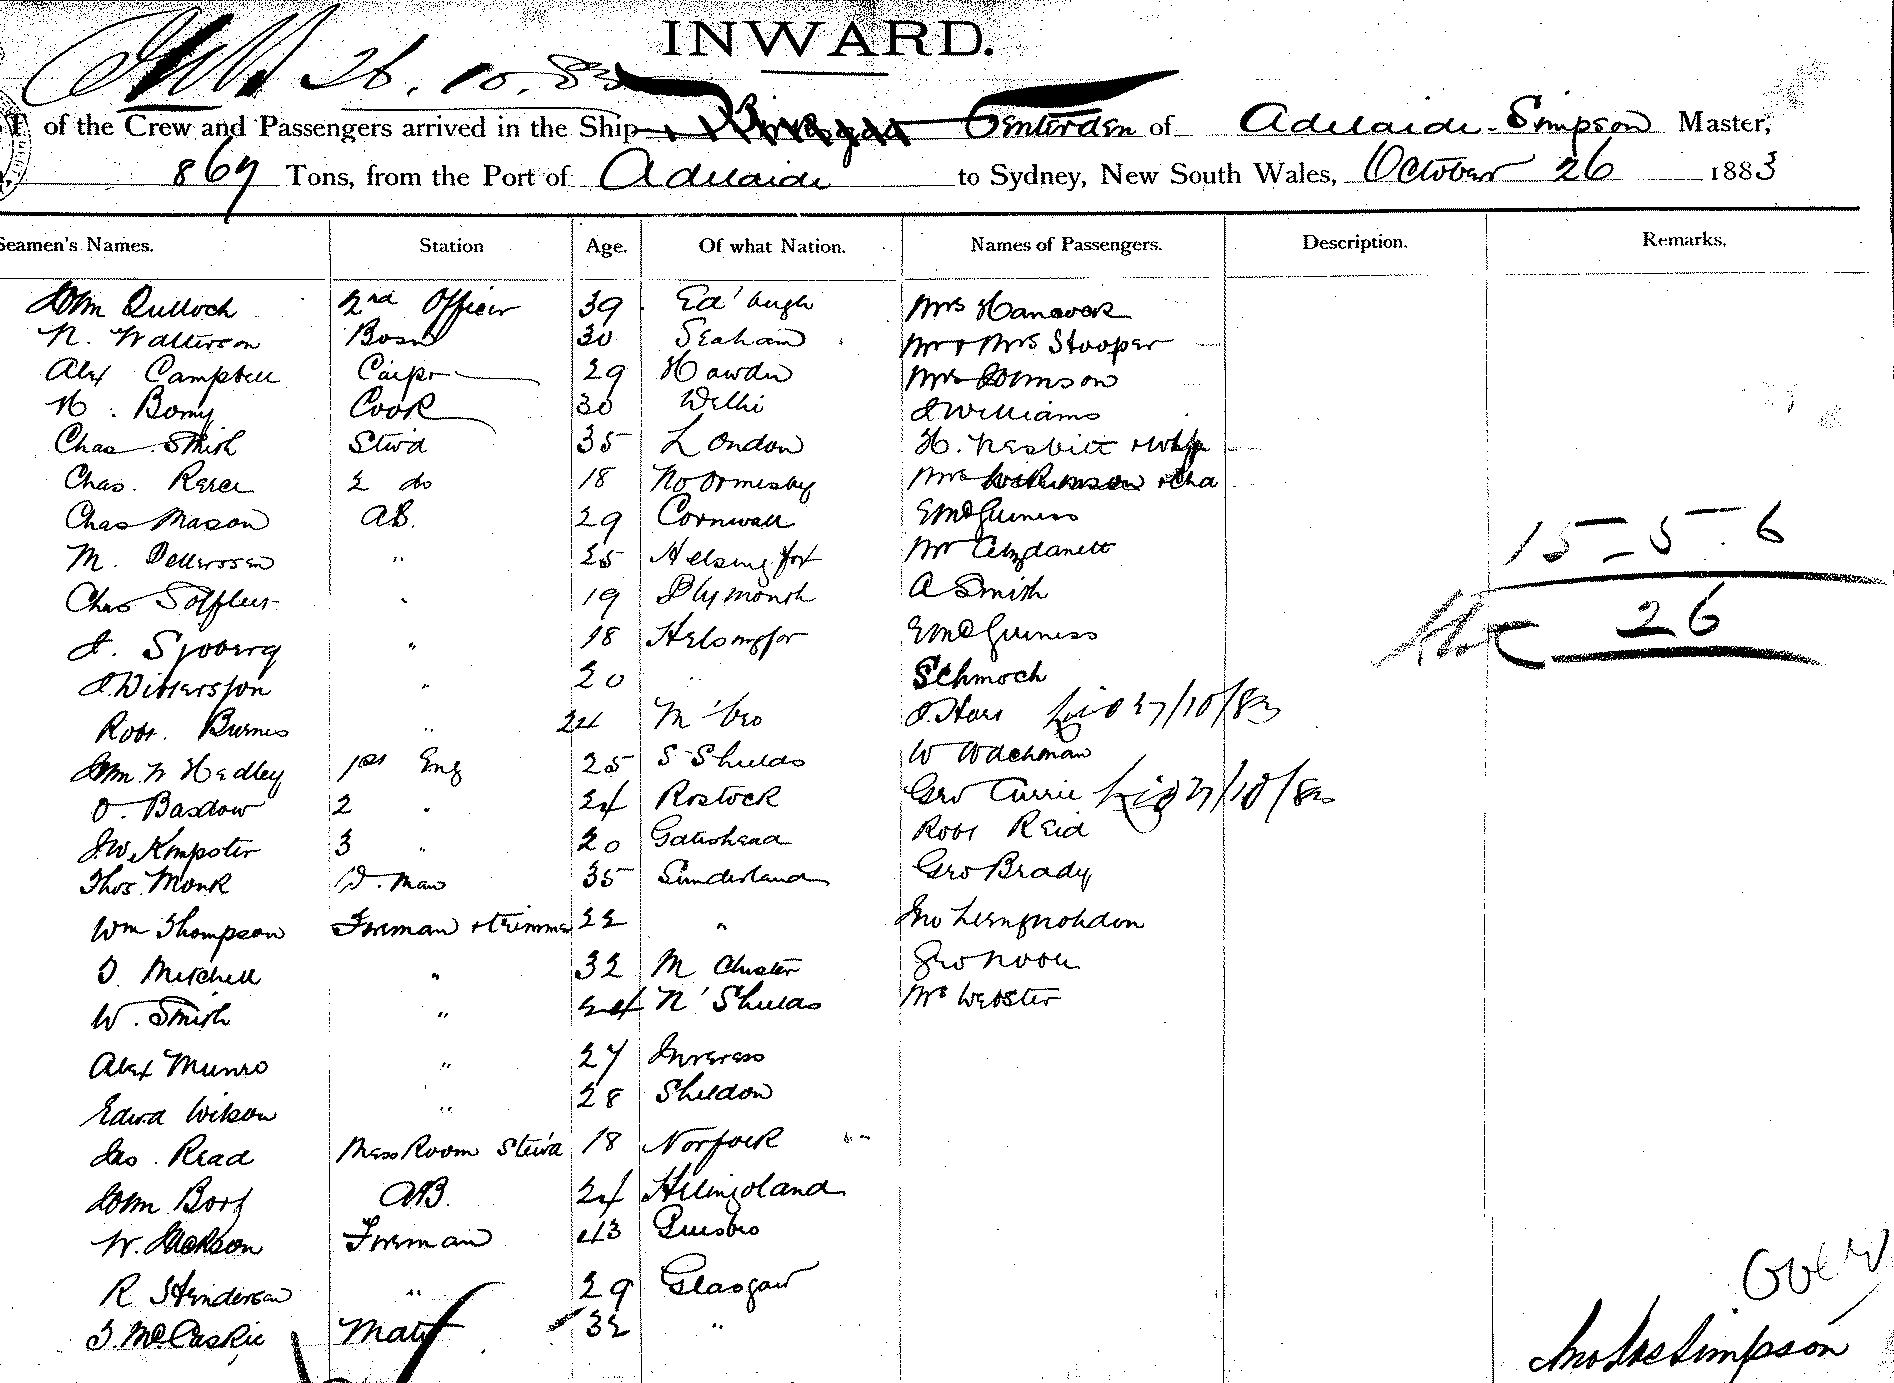 INWARD.
26.10.83
of the Crew and Passengers arrived in the Ship Tenterden of Adelaide. Simpson Master,
869 Tons, from the Port of Adelaide to Sydney, New South Wales, October 26 1883
Seamen's Names. Station Age. Of what Nation. Names of Passengers. Description. Remarks.
John Qulloch 2nd Officer 39 Ed'burgh Mrs Hancock
N. Watterson Bosn 30 Seaham Mr & Mrs Stooper
Alex Campbell Carpr 29 Hawden Mrs Johnson
H. Bomy Cook 30 J Williams
Chas Smith Stwd 35 London H. Nesbitt & Wife
Chas. Reece 2 do 18 No Ormesby Mrs Wilkinson & Cha
Chas Mason AB. 29 Cornwall E McGuiness
M. Pettersen " 25 Helsingfor Mr
Chas " 19 Plymouth A Smith
J. Sjoberg " 18 Helsingfor E McGuiness
15 - 5 . 6
26
J. " 20 " Schmoch
Robt. Burnes " 24 M'bro J. Hart 27/10/83
John W Hedley 1st Eng 25 S Shields W Wachman
O. Basdow 2 " 24 Rostock Geo Currie 27/10/83
J.W. Kempster 3 " 20 Gateshead Robt Reid
Thos. Monk D. Man 35 Sunderland Geo Brady
Wm Thompson Fireman & trimmer 22 " Jno
T. Mitchell " 32 M Chester Geo Noon
W. Smith " 24 N' Shields Mr Webster
Alex Munro " 27 Inverness
Edwd Wilson " 28 Shildon
Jas. Read Mess Room Stewd 18 Norfolk
John Borg AB. 24 Heligoland
W. Jackson Fireman 43 Guisbro
R Henderson " 29 Glasgow
Over
T. McCaskie Mate 32 "
Jno Jas Simpson